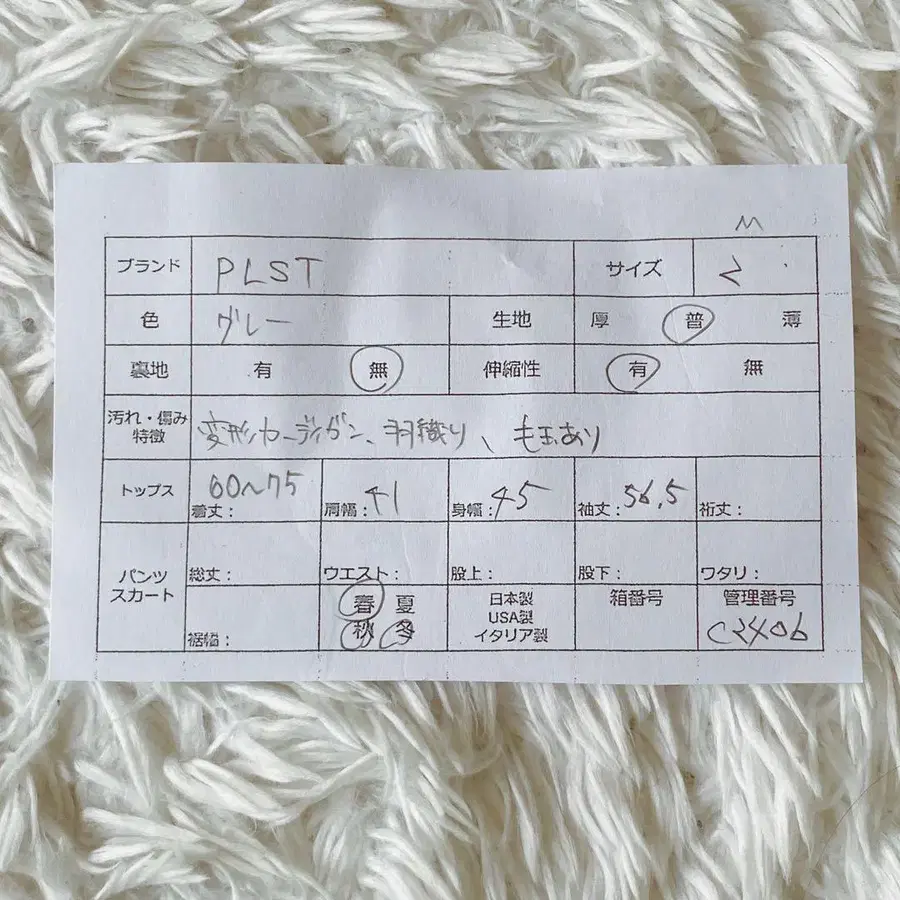 M
ブランド PLST サイズ 2
色 グレー 生地 厚 普 薄
裏地 有 無 伸縮性 有 無
汚れ・傷み
特徴 変形カーディガン、羽織り、毛玉あり
トップス 着丈:60〜75 肩幅:41 身幅:45 袖丈:56.5 裄丈:
パンツ
スカート 総丈: ウエスト: 股上: 股下: ワタリ:
裾幅: 春 夏
秋 冬
日本製
USA製
イタリア製
箱番号
管理番号
C2406